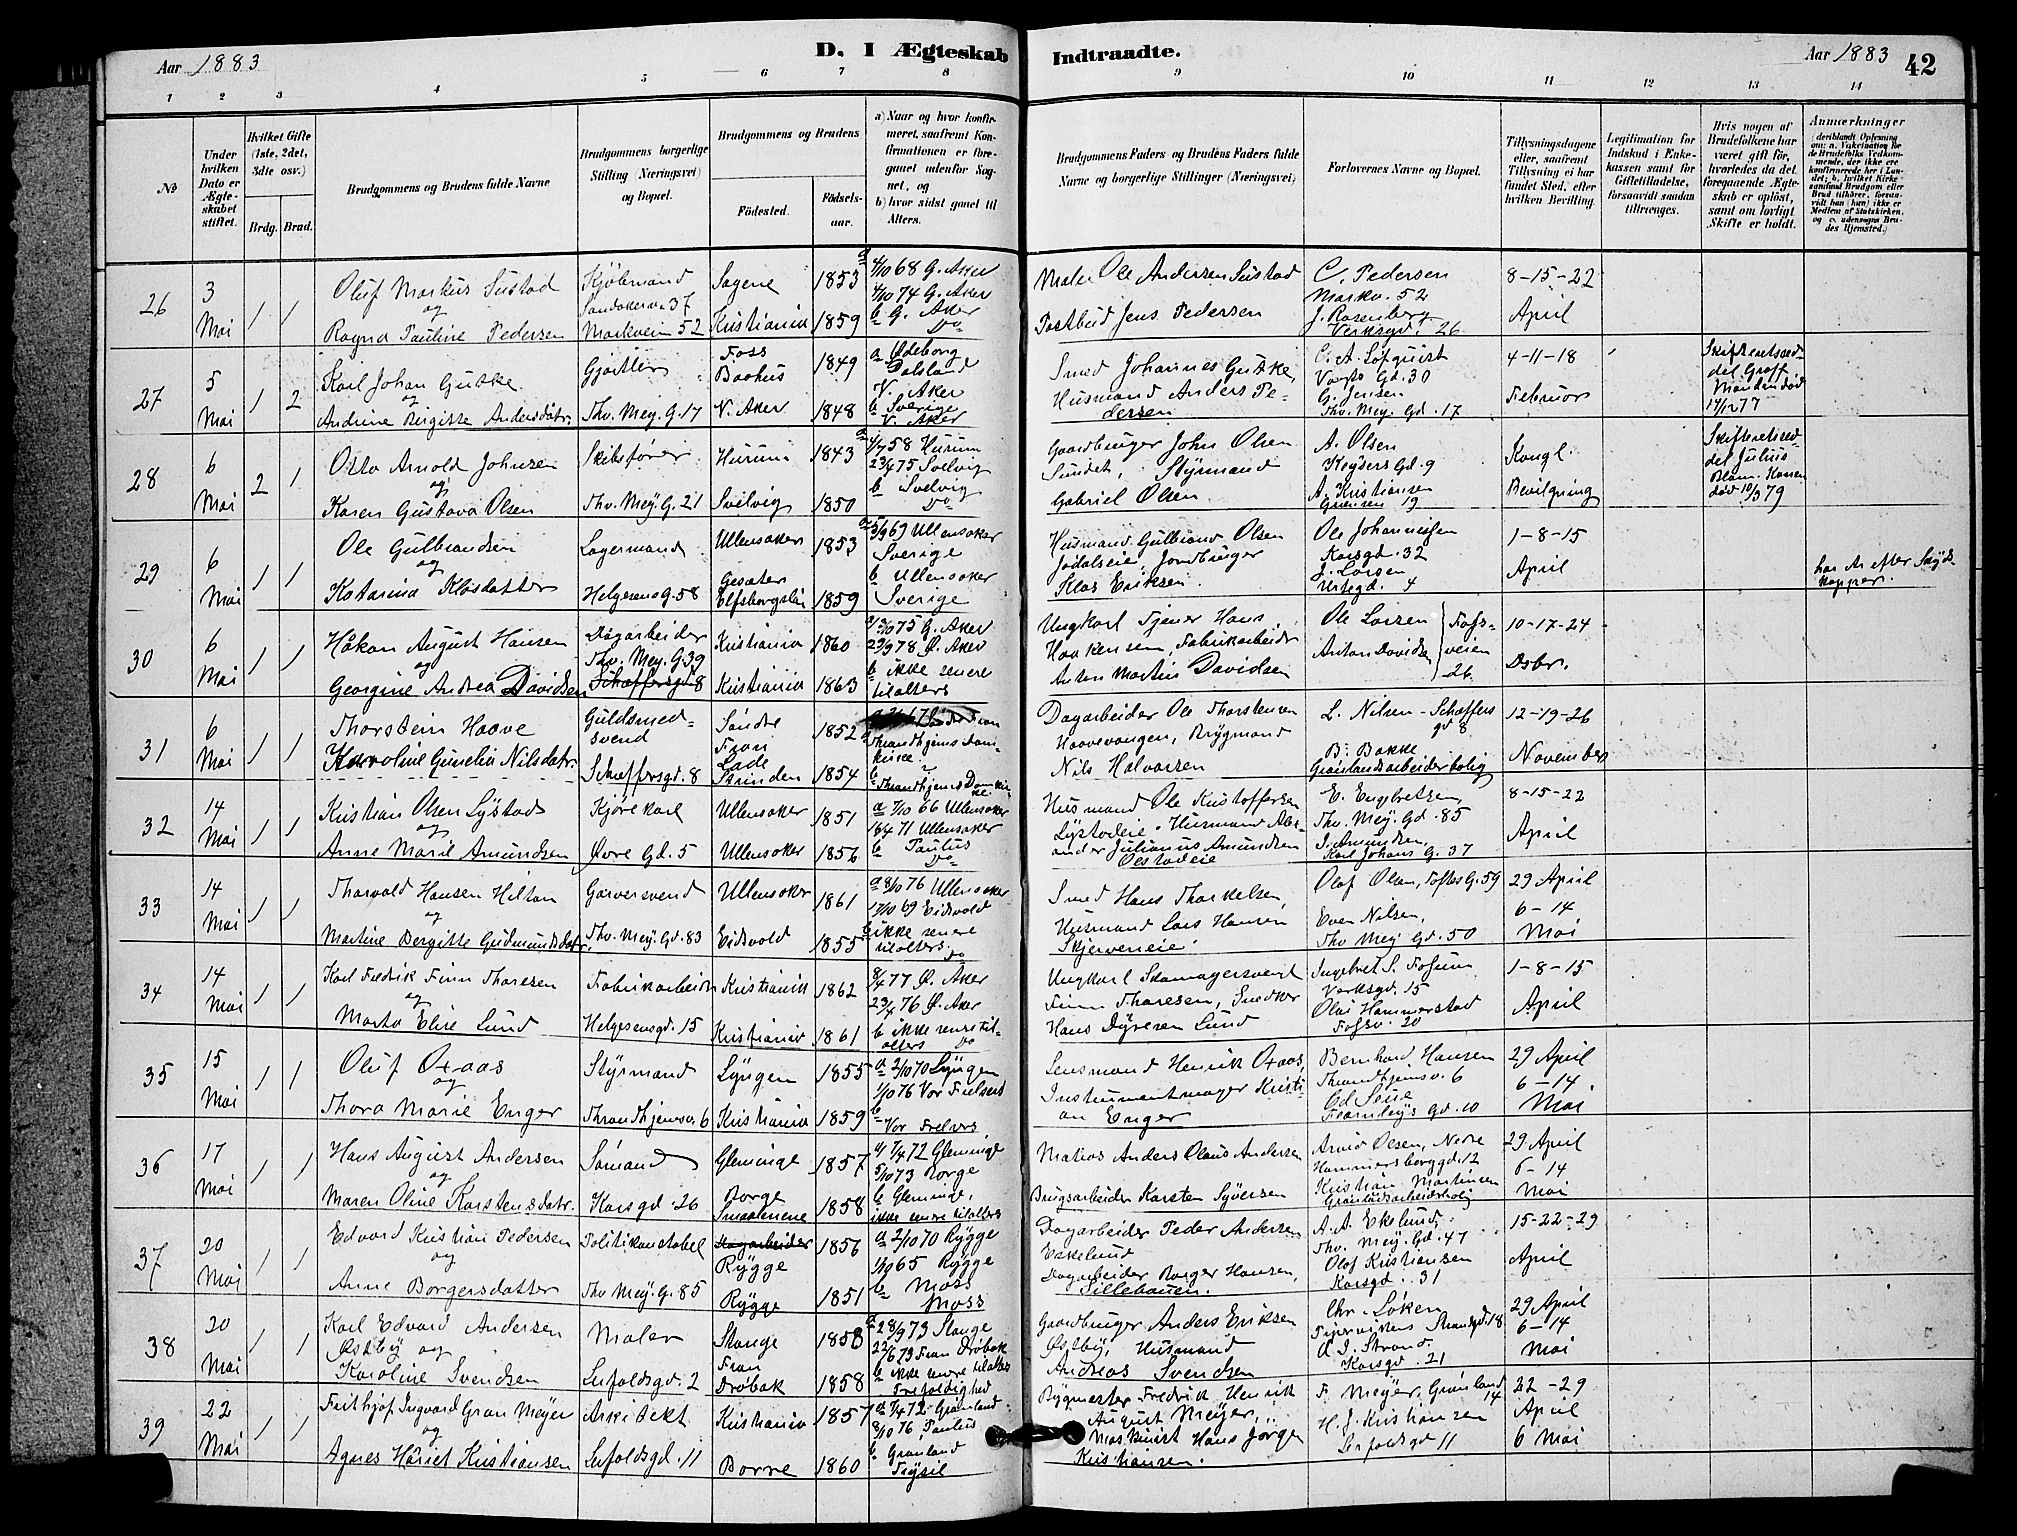 Aar 1883
D. I Ægteskab Indtraadte.
Aar 1883
42
1 2 3 4 5 6 7 8 9 10 11 12 13 14
No
Under hvilken Dato er Ægteskabet stiftet.
Hvilket Gifte (1ste, 2det, 3dte osv.)
Brdg. Brud.
Brudgommens og Brudens fulde Navne
Brudgommens borgerlige Stilling (Næringsvei) og Bopæl.
Brudgommens og Brudens
Fødested. Fødselsaar.
a) Naar og hvor konfirmeret, saafremt Konfirmationen er foregaaet udenfor Sognet, og
b) hvor sidst gaaet til Alters.
Brudgommens Faders og Brudens Faders fulde Navne og borgerlige Stillinger (Næringsvei)
Forlovernes Navne og Bopæl.
Tillysningsdagene eller, saafremt Tillysning ei har fundet Sted, efter hvilken Bevilling.
Legitimation for Indskud i Enkekassen samt for Giftetilladelse, forsaavidt saadan tiltrænges.
Hvis nogen af Brudefolkene har været gift før, hvorledes da det foregaaende Ægteskab er opløst, samt om lovligt Skifte er holdt.
Anmærkninger
26
3 Mai
1 1
Oluf Markus Sustad
og
Ragna Pauline Pedersen
Kjøbmand
Sandakerv. 37
Markveien 52
Sagene 1853
Kristiania 1859
a 4/10 68 G. Aker
4/10 74 G. Aker
b G. Aker
Do
Maler Ole Andersen Sustad
Postbud Jens Pedersen
C. Pedersen
Markv. 52
J. Rosenberg
Verksgd. 26
8-15-22
April
27
5 Mai
1 2
Karl Johan Gutke
og
Andrine Birgitte Andersdatr.
Gjørtler
Thv. Mey. G. 17
Foss
Baahus 1849
V. Aker 1848
a Ødeborg
Dalsland
V. Aker
b Sverige
V. Aker
Smed Johannes Gutke,
Husmand Anders Pedersen
C. A. Löfquist
Vogts Gd. 30
G. Jensen
Thv. Mey. Gd. 17
4-11-18
Februar
28
6 Mai
2 1
Otto Arnold Johnsen
og
Karen Gustava Olsen
Skibsfører
Thv. Mey. G. 21
Hurum 1843
Svelvig 1850
Hurum
Svelvig
b Svelvig
Do
Gaardbruger John Olsen
Sundet, Styrmand
Gabriel Olsen
A. Olsen
Keysers Gd. 9
A. Kristiansen
Grændsen 19
Kongl.
Bevilgning
død 10/3 79
29
6 Mai
1 1
Ole Gulbrandsen
og
Katarina Klasdatter
Lagermand
Helgesens G. 58
Ullensaker 1853
Gesäter
Elfsborgslän 1859
a 5/9 69 Ullensaker
Sverige
b Ullensaker
Sverige
Husmand Gulbrand Olsen
Jadalseie, Jordbruger
Klas Eriksen
Ole Johannesen
Korsgd. 32
J. Larsen
Urtegd. 4
1-8-15
April
har Ar efter Skydkopper.
30
6 Mai
1 1
Håkon August Hansen
og
Georgine Andrea Davidsen
Dagarbeider
Thv. Mey. G. 39
Schæffersgd 8
Kristiania 1860
Kristiania 1863
75 G. Aker
23/9 78 Ø. Aker
b ikke senere
tilalters
Ungkarl Tjener Hans
Haakensen, Fabrikarbeider
Anton Martin Davidsen
Ole Larsen
Anton Davidsen
Fossveien
26
10-17-24
Dsbr.
31
6 Mai
1 1
Thorstein Haave
Karoline Gurelia Nilsdatr.
Guldsmedsvend
Schæffersgd. 8
Søndre
Fron 1852
Lade
Strinden 1854
Throndhjems Domkirke
b
Throndhjems Domkirke
Dagarbeider Ole Thorstensen
Haavevangen, Brygmand
Nils Halvorsen
L. Nilsen Schæffers
gd 8
B. Bakke
Grønlandsarbeiderbolig
12-19-26
November
32
14 Mai
1 1
Kristian Olsen Lystad
og
Anne Marie Amundsen
Kjørekarl
Øvre Gd. 5
Ullensaker 1851
Ullensaker 1856
a 7/10 66 Ullensaker
18/4 71 Ullensaker
b Paulus
Do
Husmand Ole Kristoffersen
Lystadeie. Husmand Alexander Julianus Amundsen
Olstadeie
E. Engebretsen
Thv. Mey. Gd. 85
S. Amundsen
Karl Johans G. 37
8-15-22
April
33
14 Mai
1 1
Tharvald Hansen Hilton
og
Martine Bergitte Gudmundsdatr.
Garversvend
Thv. Mey. Gd. 83
Ullensaker 1861
Eidsvold 1855
a 8/10 76 Ullensaker
17/10 69 Eidsvold
b ikke senere
tilalters
Do
Smed Hans Thorkelsen,
Husmand Lars Hansen
Skjerveneie
Olaf Olsen, Toftes G. 59
Even Nilsen,
Thv Mey Gd. 50
29 April
6-14
Mai
34
14 Mai
1 1
Karl Fredrik Finn Thoresen
og
Marta Elise Lund
Fabrikarbeider
Helgesensgd. 15
Kristiania 1862
Kristiania 1861
8/4 77 Ø. Aker
23/4 76 Ø. Aker
b ikke senere tilalters
Do
Ungkarl Skomagersvend
Finn Thoresen, Snedker
Hans Dyresen Lund
Ingebret S. Fossum
Verksgd. 15
Olai Hammerstad
Fossv. 20
1-8-15
April
35
15 Mai
1 1
Oluf Oxaas
og
Thora Marie Enger
Styrmand
Throndhjemsv. 6
Lyngen 1855
Kristiania 1859
a 2/10 70 Lyngen
1/10 76 Vor Frelsers
b
Vor Frelsers
Lensmand Henrik Oxaas,
Instrumentmager Kristian Enger
Bernhard Hansen
Throndhjemsv. 6
Fearnleys Gd. 10
29 April
6-14.
Mai
36
17 Mai
1 1
Hans August Andersen
og
Maren Oline Karstensdatr.
Sømand
Korsgd 26
Glemminge 1857
Borge
Smaalenene 1858
a 7/4 72 Glemminge
5/10 73 Borge
b Glemminge,
ikke senere tilalters
Matros Anders Olaus Andersen
Brugsarbeider Karsten Syversen
Arnt Olsen, Nedre
Hammersborggd. 12
Kristian Martinsen
Grønlandsarbeiderbolig
29 April
6-14
Mai
37
20 Mai
1 1
Edvard Kristian Pedersen
og
Anne Borgersdatter
Politikonstabel
Thv Mey. G. 85
Dagarbeider
Rygge 1856
Rygge 1851
a 2/10 70 Rygge
1/10 65 Rygge
b Moss
Moss
Dagarbeider Peder Andersen
Ekelund
Dagarbeider Borger Hansen,
Sillebauen.
A. A. Ekelund,
Thv. Mey. Gd. 47
Olaf Kristiansen
Korsgd. 31
15-22-29
April
38
20 Mai
1 1
Karl Edvard Andersen
Østby og
Karoline Svendsen
Maler
Leufoldsgd. 2
Stange 1858
Fron
Drøbak 1858
a 28/9 73 Stange
23/6 73 Fron Drøbak
b ikke senere tilalters
Trefoldighed
Gaardbruger Anders Eriksen
Østby, Husmand
Andreas Svendsen
Chr. Løken
Pipervikens Strandgd. 18
A. J. Strand
Korsgd. 21
29 April
6-14
Mai
39
22 Mai
1 1
Frithjof Ingvard Gran Meyer
og
Agnes Hariet Kristiansen
Arkitekt
Leufoldsgd. 11
Kristiania 1857
Borre 1860
a 7/4 72 Grønland
8/10 76 Paulus
b Grønland
Trysil
Rygmester Fredrik Henrik
August Meyer,
Maskinist Hans Jørgen
Kristiansen.
F. Meyer, Grønland
14
H. J. Kristiansen
Leufoldsgd 11
22-29
April
6 Mai